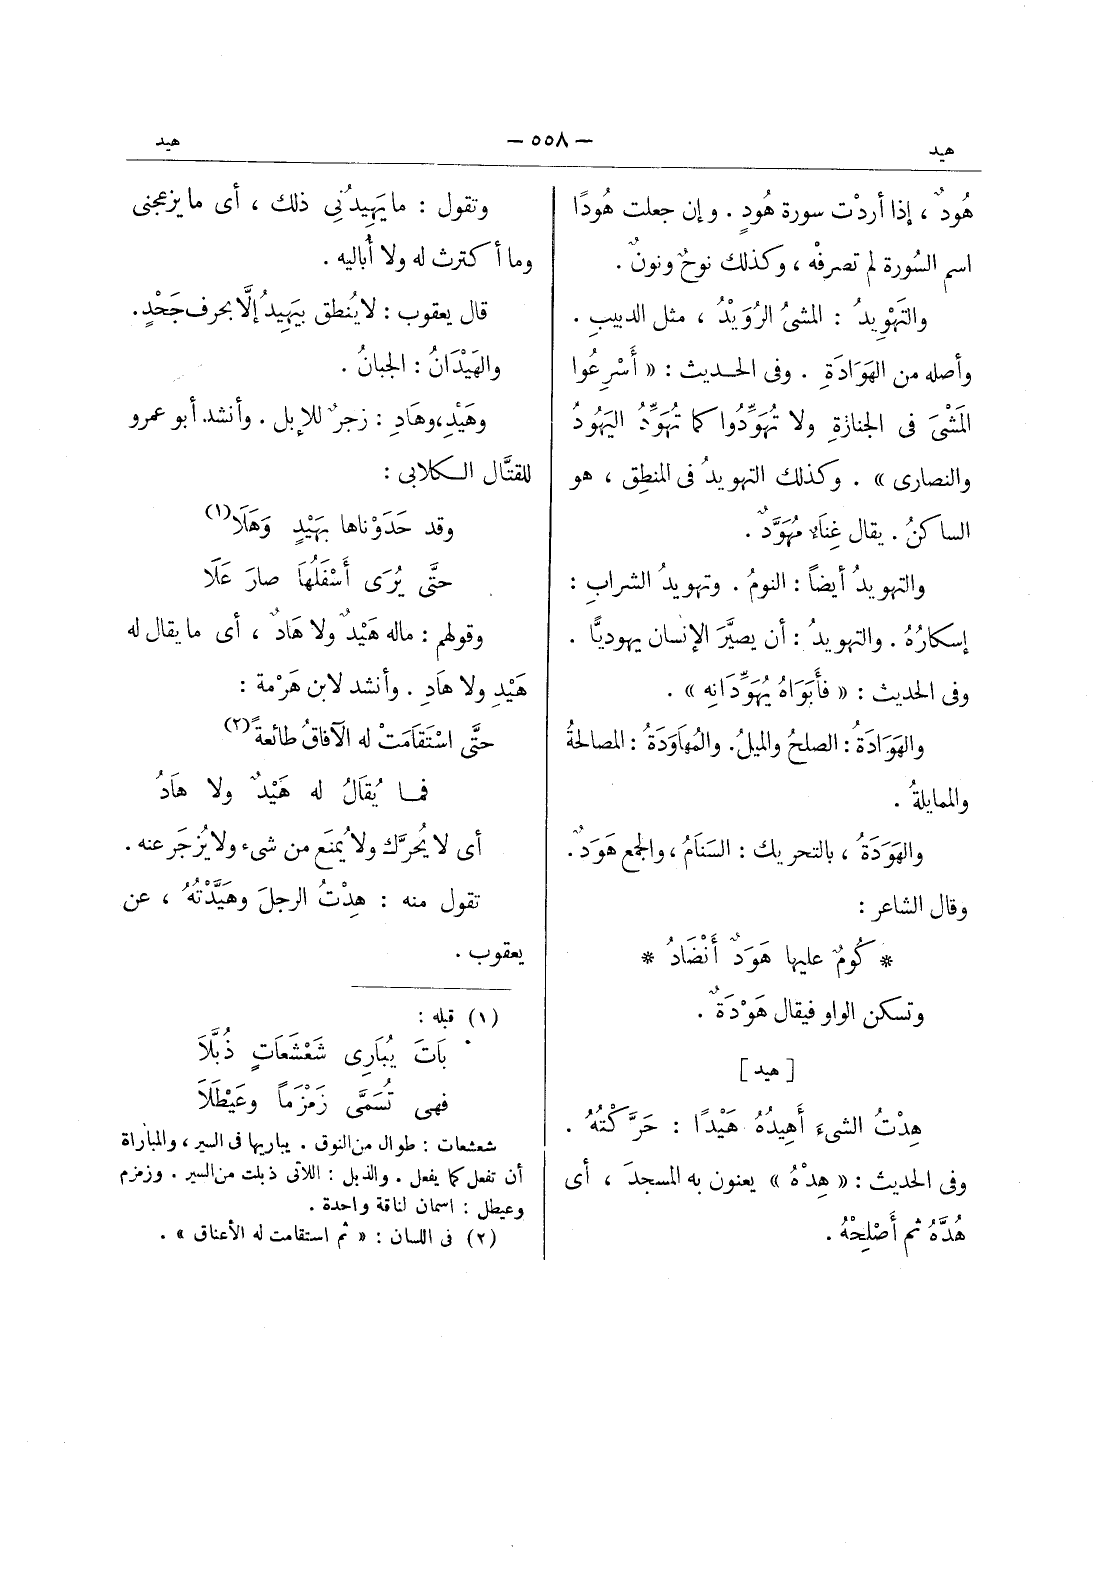 هيد
— ٥٥٨ —
هيد
هُودٌ ، إذا أردْت سورة هُودٍ . وإن جعلت هُودًا
اسم السُورة لم تصرفْه ، وكذلك نوحٌ ونونٌ .
والتَهْوِيدُ : المشىُ الرُوَيْدُ ، مثل الدبيبِ .
وأصله من الهَوَادَةِ . وفى الحديث : « أَسْرِعُوا
المَشْىَ فى الجنازةِ ولا تُهَوِّدُوا كما تُهَوِّدُ اليَهُودُ
والنصارى » . وكذلك التهويدُ فى المنطِق ، هو
الساكنُ . يقال غِنَاءٌ مُهَوَّدٌ .
والتهويدُ أيضاً : النومُ . وتهويدُ الشراب :
إسكارُهُ . والتهويدُ : أن يصيَّرَ الإنسان يهوديًّا .
وفى الحديث : « فأَبَوَاهُ يُهَوِّدَانِه » .
والهَوَادَةُ : الصلحُ والميلُ. والمُهاوَدَةُ : المصالحةُ
والممايلةُ .
والهَوَدَةُ ، بالتحريك : السَنَامُ ، والجمع هَوَدٌ .
وقال الشاعر :
* كُومٌ عليها هَوَدٌ أَنْضَادُ *
وتسكن الواو فيقال هَوْدَةٌ .
[ هيد ]
هِدْتُ الشىءَ أَهِيدُهُ هَيْدًا : حَرَّكْتُهُ .
وفى الحديث : « هِدْهُ » يعنون به المسجدَ ، أى
هُدَّهُ ثم أَصْلِحْهُ .
وتقول : ما يَهِيدُنِى ذلك ، أى ما يزعجنى
وما أكترث له ولا أُباليه .
قال يعقوب : لا يُنطق بِيَهِيدُ إلَّا بحرف جَحْدٍ.
والهَيْدَانُ : الجبانُ .
وهَيْدِ، وهَادِ : زجرٌ للإبل . وأنشد أبو عمرو
للقتَّال الكلابى :
وقد حَدَوْناها بِهَيْدٍ وَهَلَا (١)
حتَّى يُرَى أَسْفَلُهَا صارَ عَلَا
وقولهم : ماله هَيْدٌ ولا هَادٌ ، أى ما يقال له
هَيْدِ ولا هَادِ . وأنشد لابن هَرْمة :
حتَّى اسْتَقَامَتْ له الآفاقُ طائعةً (٢)
فما يُقَالُ له هَيْدٌ ولا هَادُ
أى لا يُحرَّك ولا يُمنَع من شىء ولا يُزجَر عنه .
تقول منه : هِدْتُ الرجلَ وهَيَّدْتُهُ ، عن
يعقوب .
(١) قبله :
بَاتَ يُبَارِى شَعْشَعَاتٍ ذُبَّلَا
فهى تُسَمَّى زَمْزَماً وعَيْطَلَا
شعشعات : طوال من النوق . يباريها فى السير ، والمباراة
أن تفعل كما يفعل . والذبل : اللاتى ذبلت من السير . وزمزم
وعيطل : اسمان لناقة واحدة .
(٢) فى اللسان : « ثم استقامت له الأعناق » .